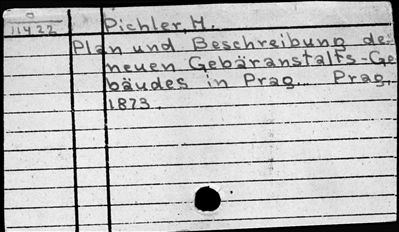 O
11422
Pichler, M.
Plan und Beschreibung de
neuen Gebäranstalts-Ge
bäudes in Prag. Prag,
1873.